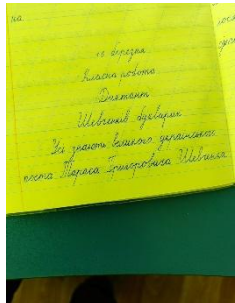 на
16 березня
Класна робота
Диктант
Шевченків букварик
Усі знають великого українського
поета Тараса Григоровича Шевченка